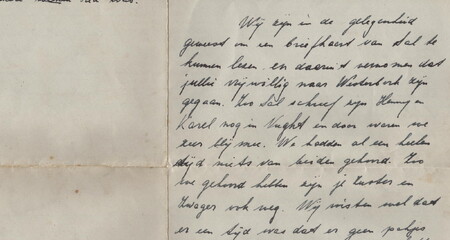 Wij zijn in de gelegenheid
geweest om een briefkaart van Sal te
kunnen lezen en daaruit vernomen dat
jullie vrijwillig naar Westerbork zijn
gegaan. Zoo Sal schreef zijn Henny en
Karel nog in Vught en door waren we
zeer blij mee. We hadden al een heelen
tijd niets van beiden gehoord. Zoo
we gehoord hebben zijn je Zuster en
Zwager ook weg. Wij wisten wel dat
er een tijd was dat er geen